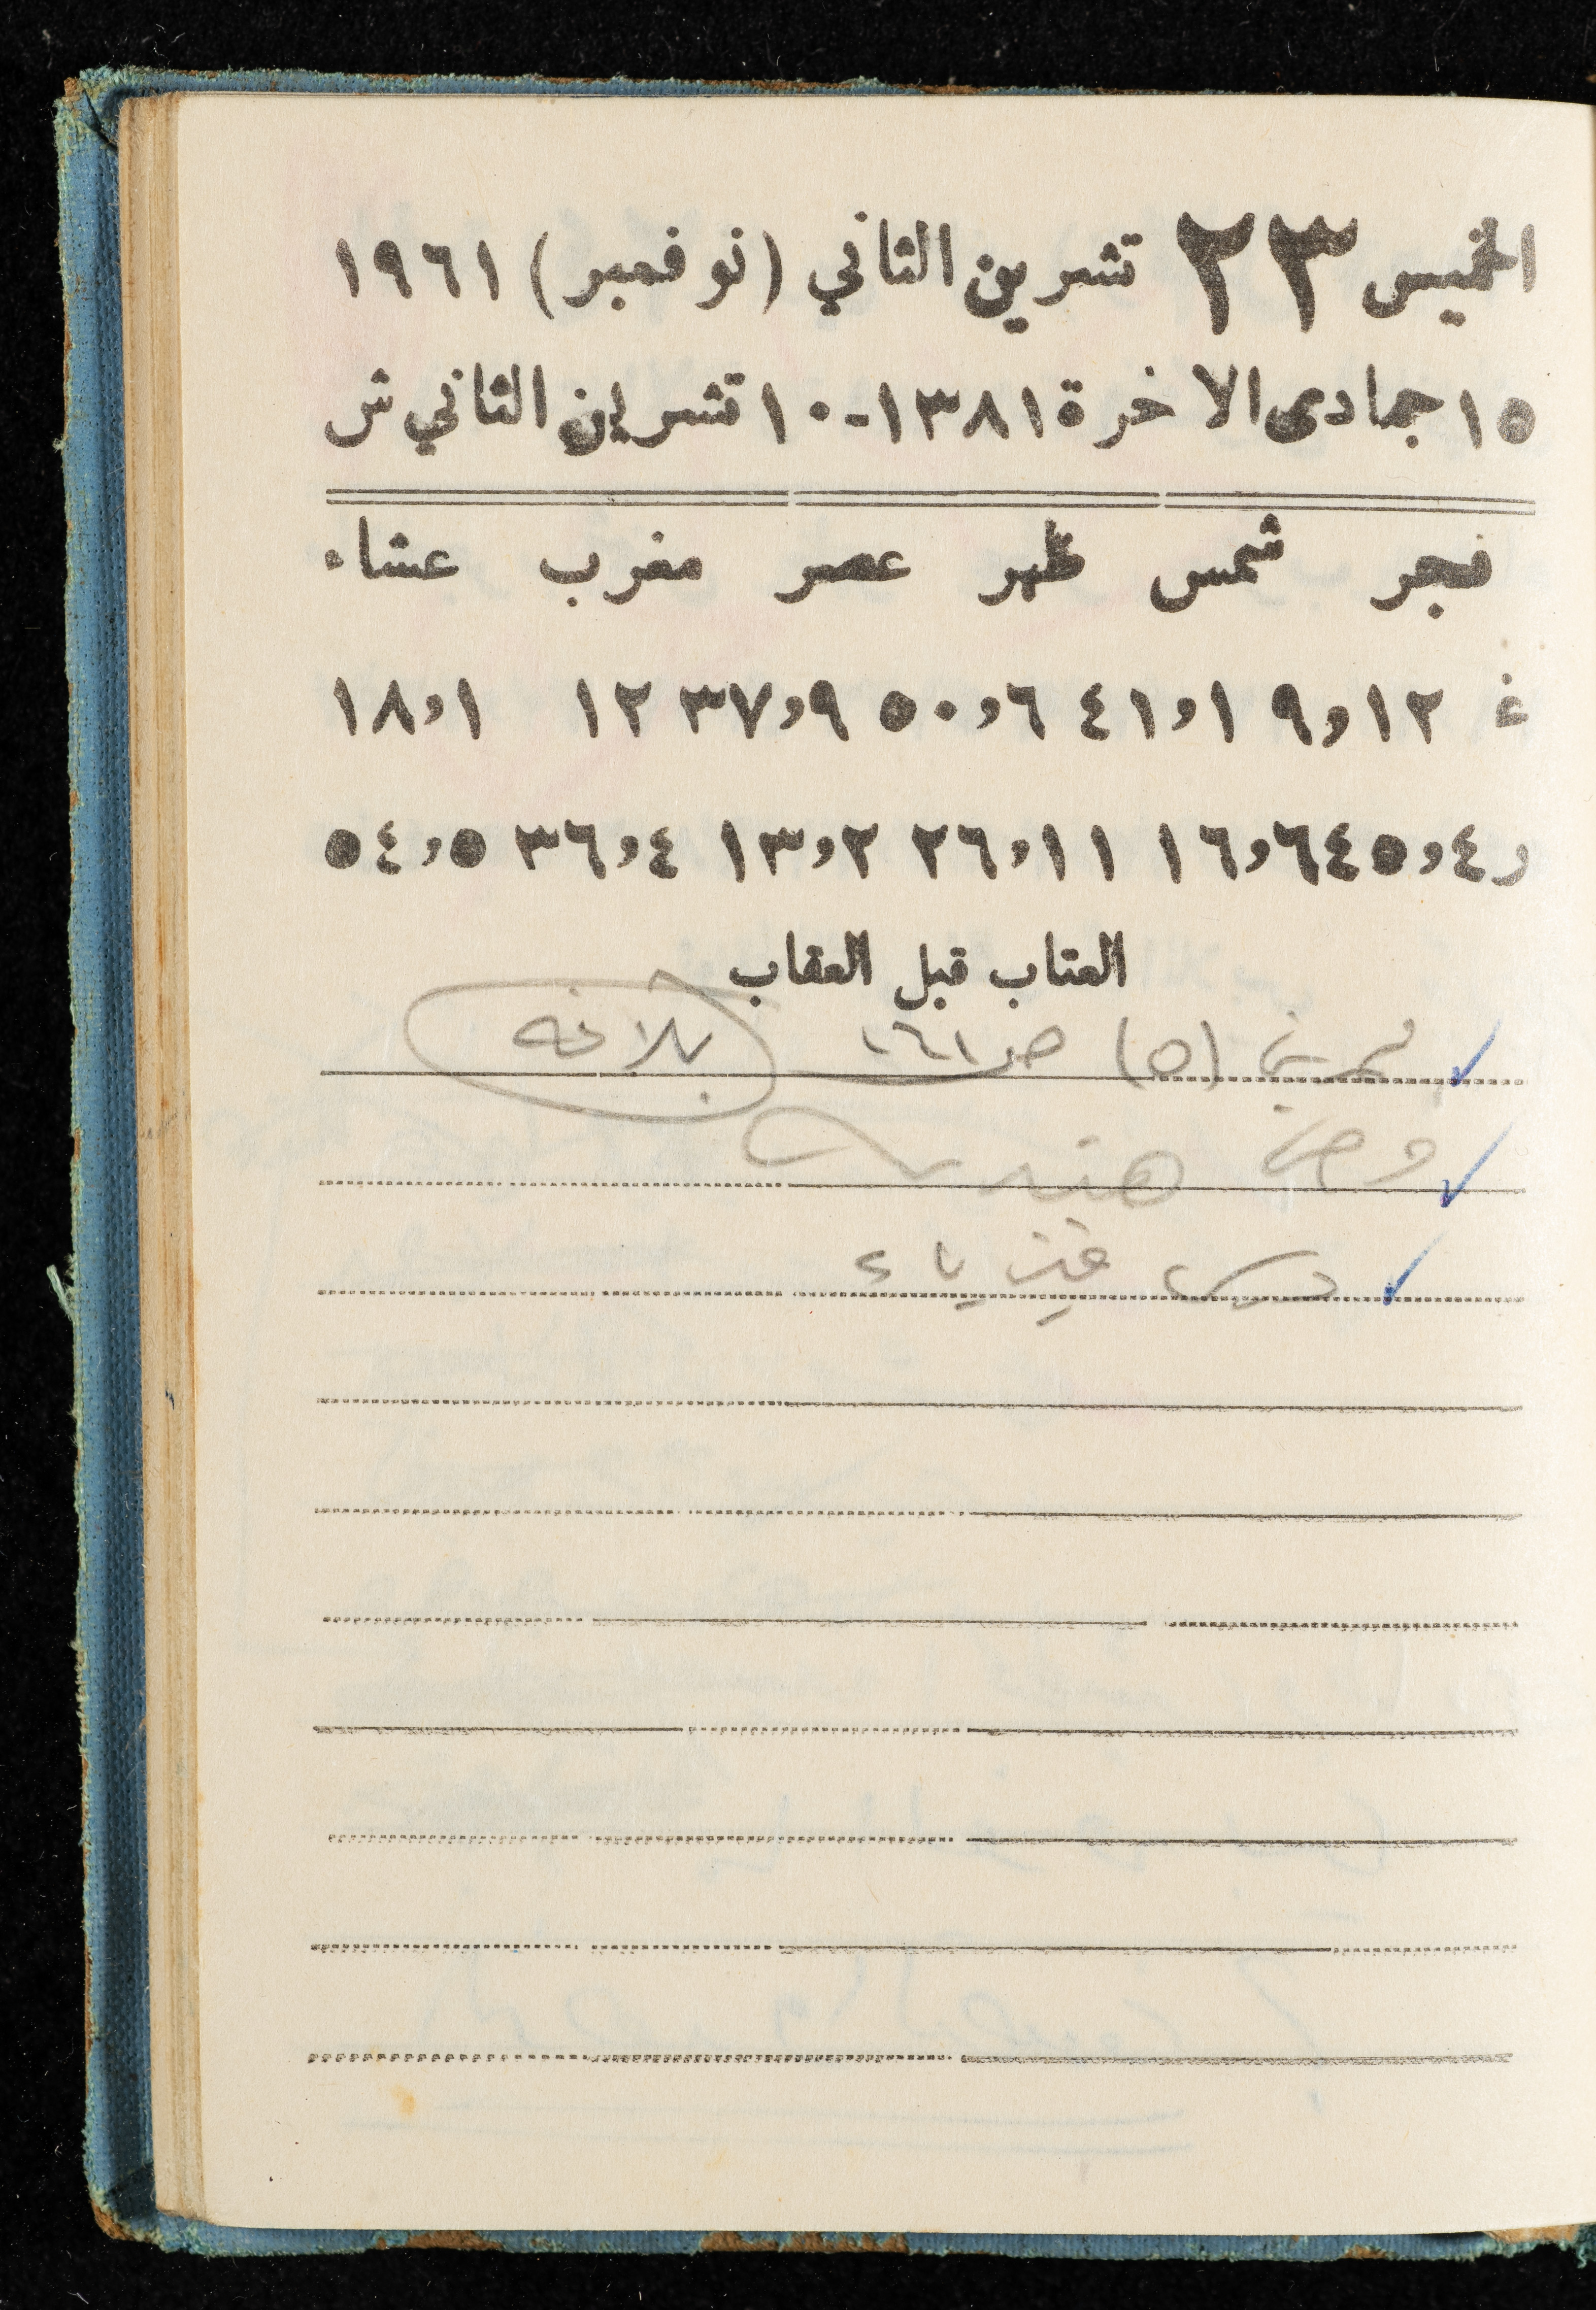 الخميس ٢٣ تشرين الثاني (نوفمبر) ١٩٦١
١٥ جمادى الاخرة ١٣٨١-١٠ تشرين الثاني ش
فجر شمس ظهر عصر مغرب عشاء
غ ١٢و٩ ١و٤١ ٦و٥٠ ٩و٣٧ ١٢ ١و١٨
ز ٤و٤٥ ٦و١٦ ١١و٢٦ ٢و١٣ ٤و٣٦ ٥و٥٤
العتاب قبل العقاب
تمرين (٥) ص ١٦١ بلاغه
هندسه
درس فيزياء